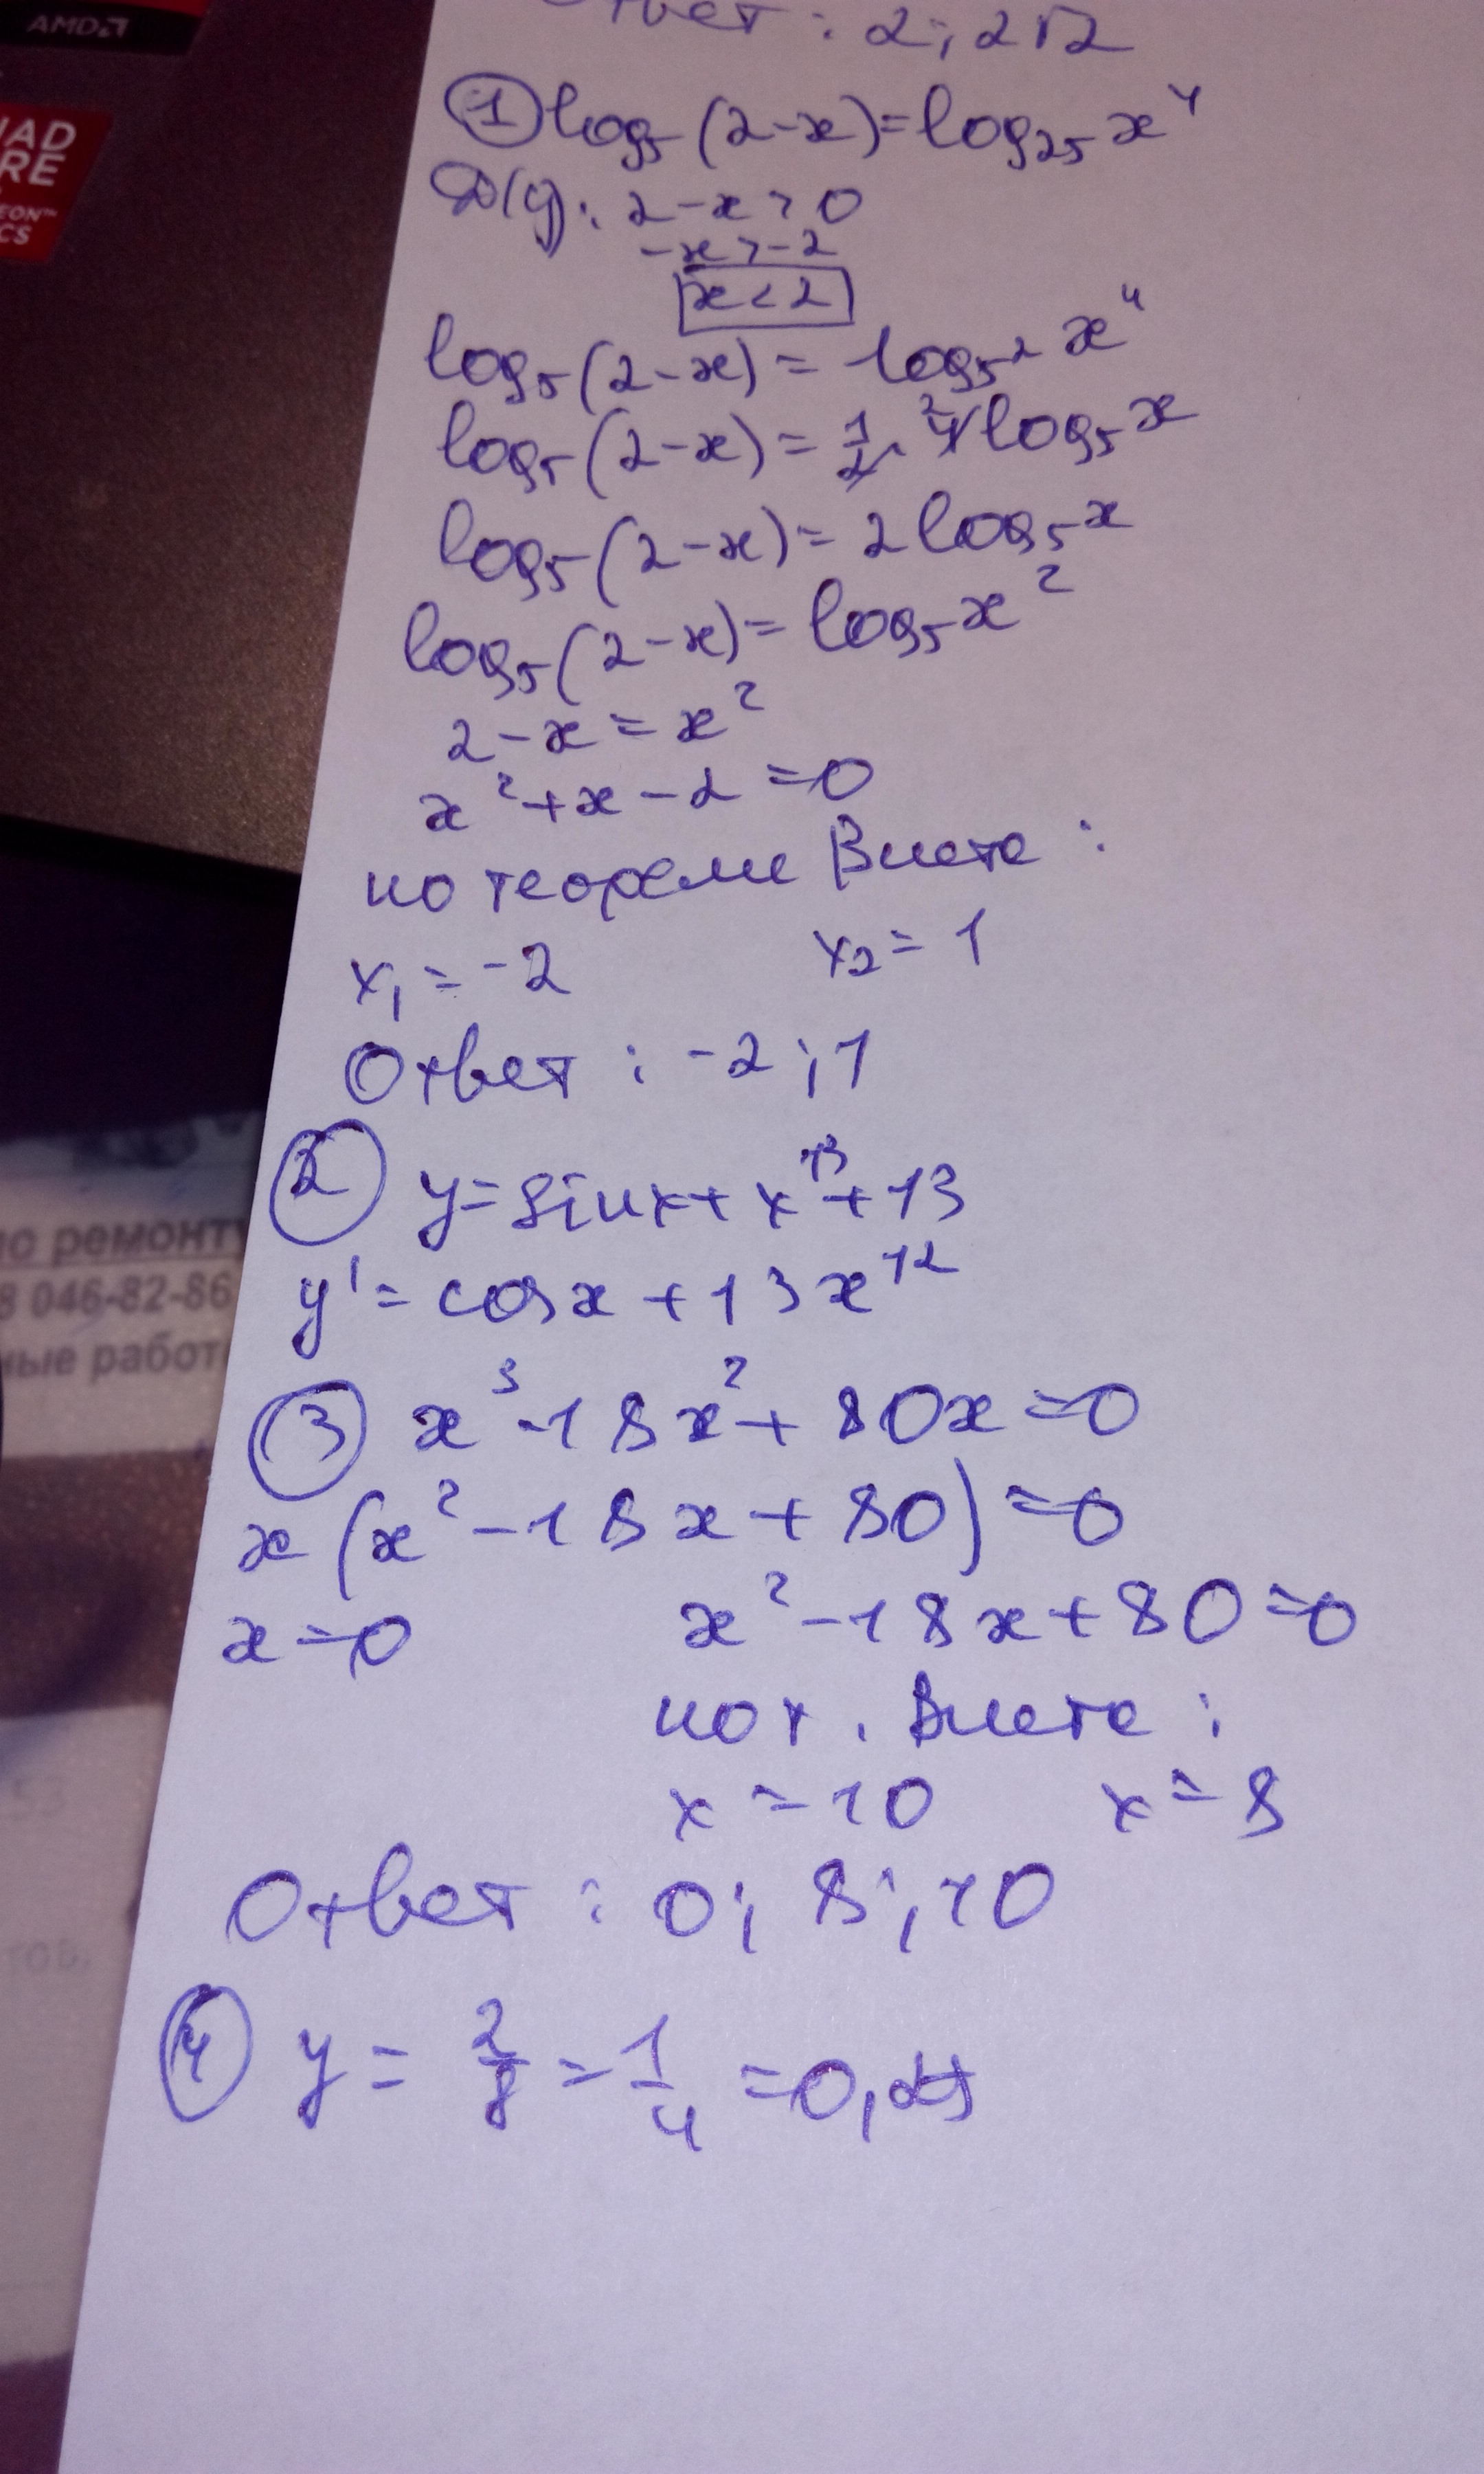 AMD
Ответ: 2; 2√2
QUAD
CORE
RADEON™
① log₅(2-x)=log₂₅x⁴
D(y): 2-x>0
-x>-2
x<2
log₅(2-x)=log₅²x⁴
log₅(2-x)=1/2·4log₅x
2
log₅(2-x)=2log₅x
log₅(2-x)=log₅x²
2-x=x²
x²+x-2=0
по теореме Виета:
x₁=-2 x₂=1
Ответ: -2;1
② y=sinx+x¹³+13
y'=cosx+13x¹²
③ x³-18x²+80x=0
x(x²-18x+80)=0
x=0 x²-18x+80=0
по т. Виета:
x=10 x=8
Ответ: 0; 8; 10
④ y=2/8=1/4=0,25
по ремонту
8 046-82-86
ные работ
53
тов.